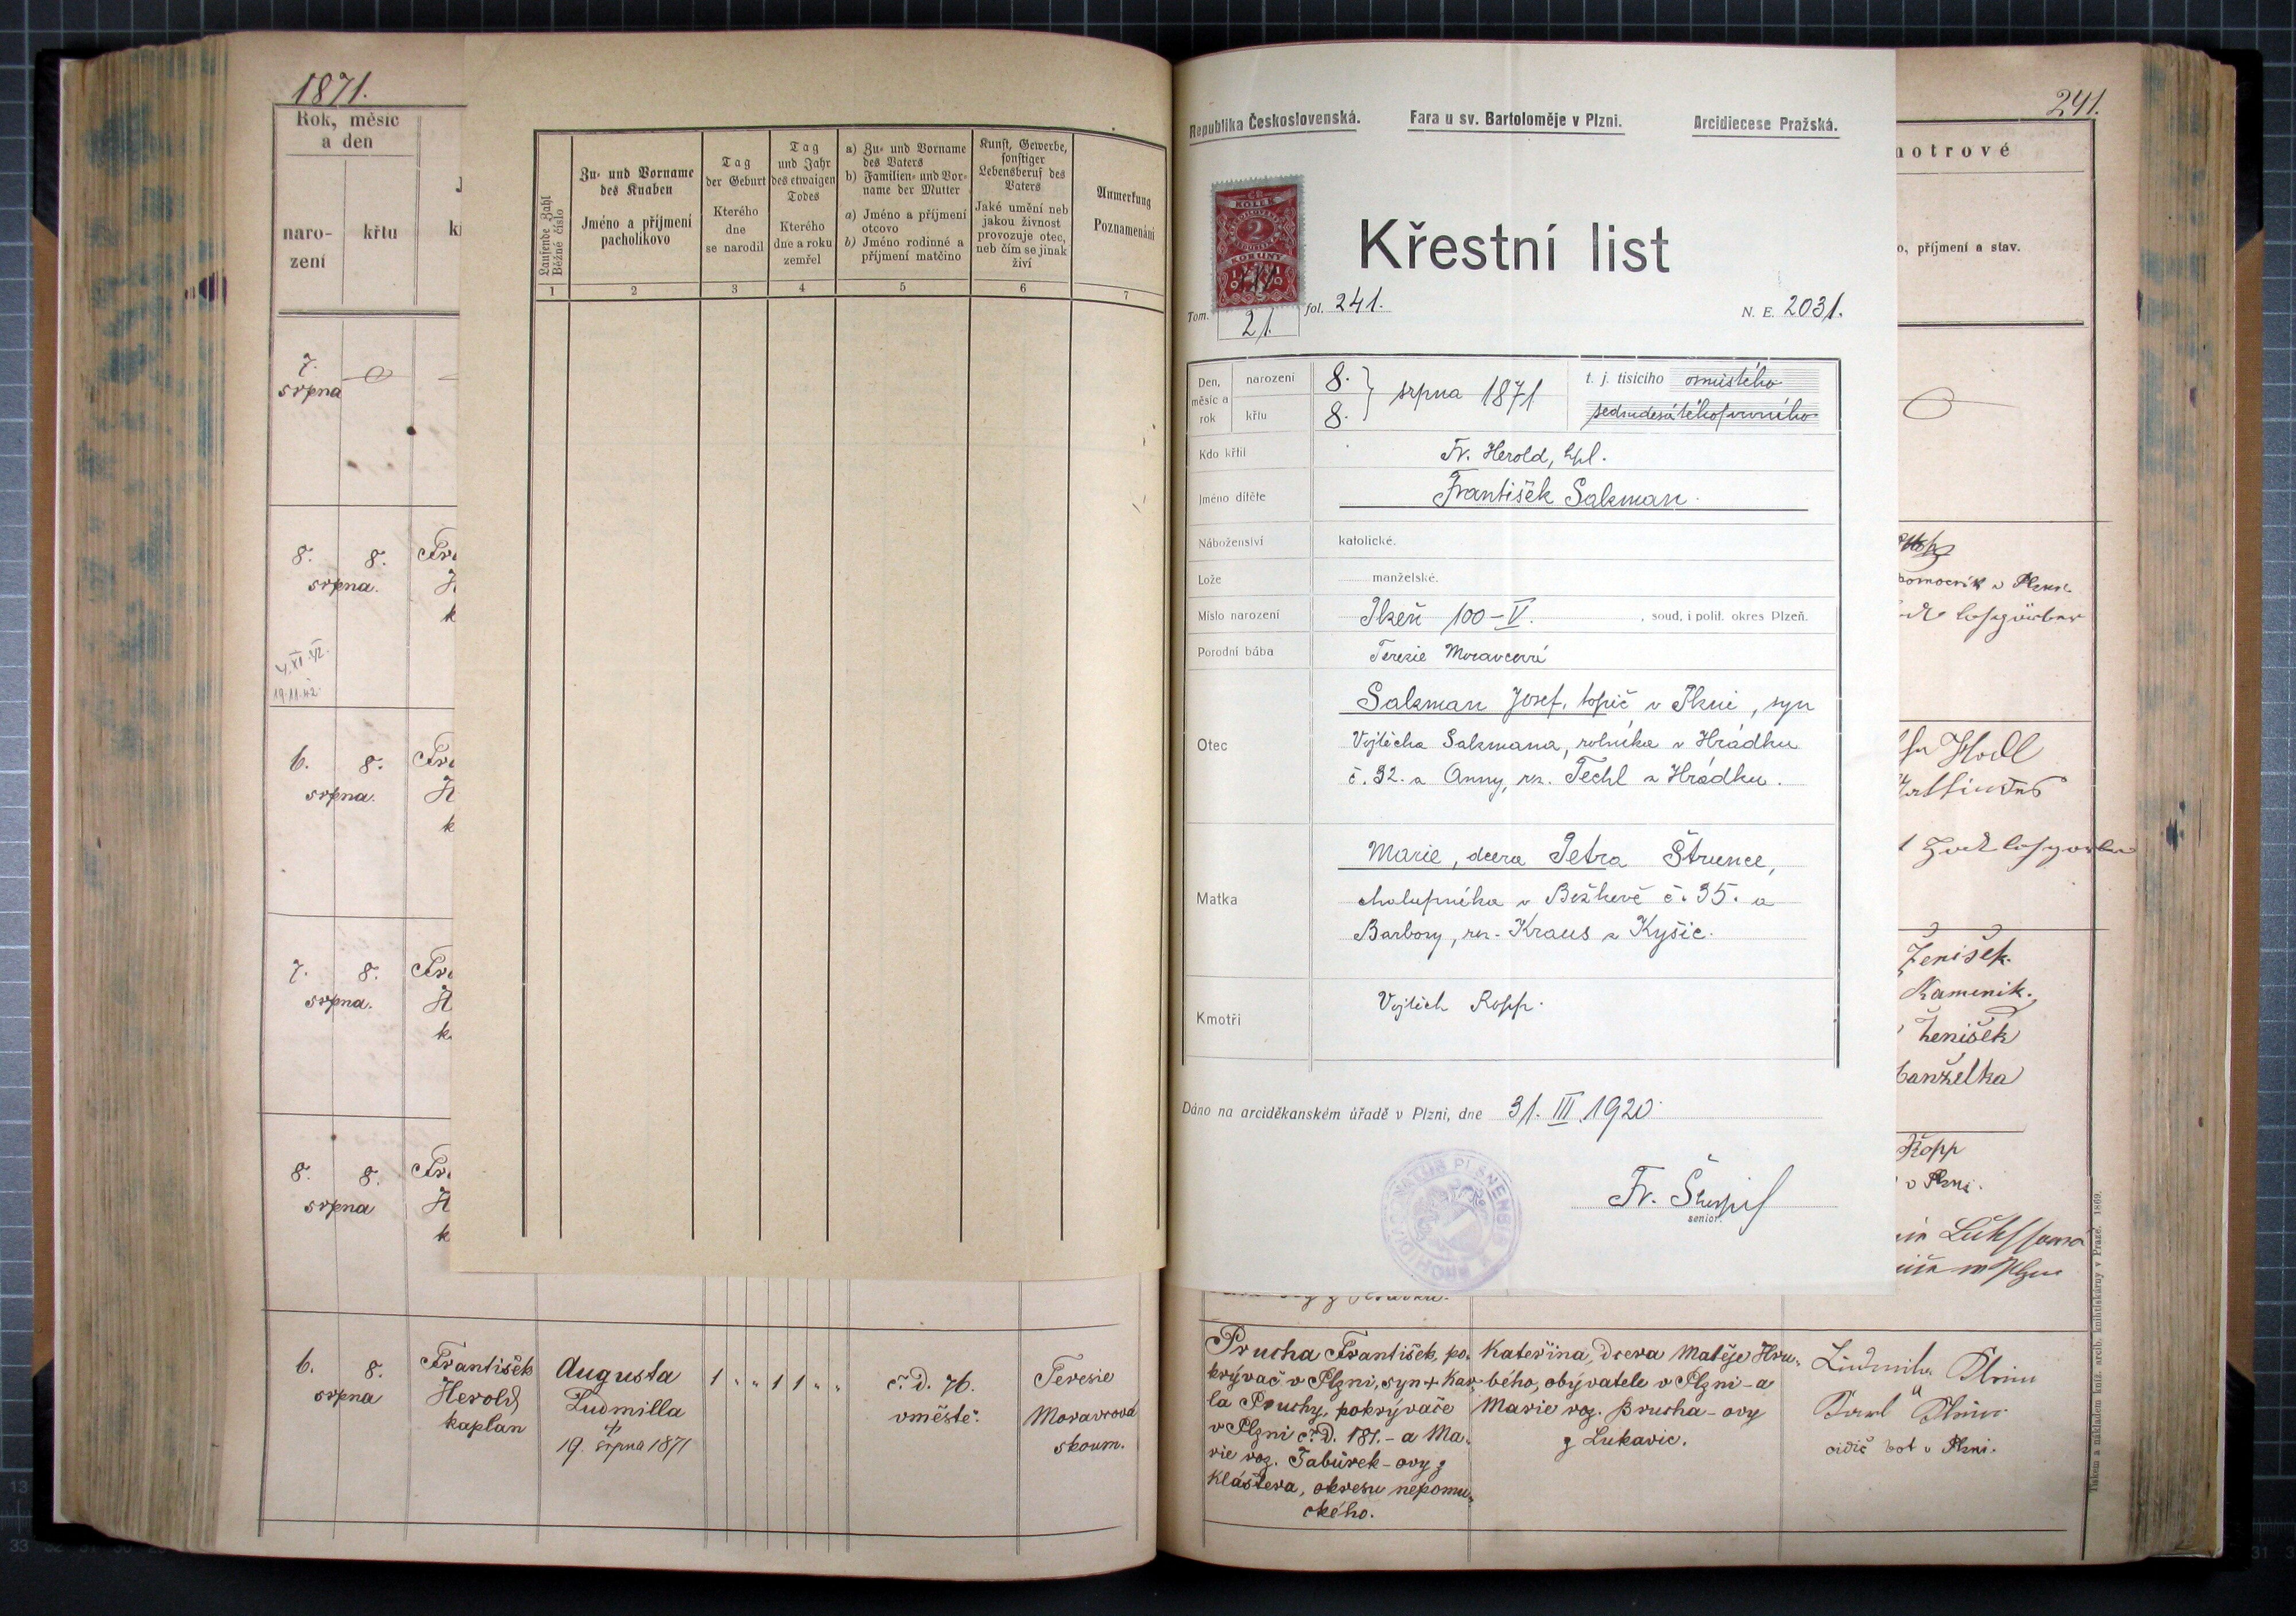 1871.
Rok, měsíc
a den
naro-
zení
křtu
7.
srpna
8. 8.
srpna.
4. XI. 42.
19.11.42.
6. 8.
srpna.
7. 8.
srpna.
8. 8.
srpna
6. 8.
srpna
František
Herold
kaplan
Augusta
Ludmilla
19. srpna 1871
1 „ „ 1 1 „ „
č. D. 76.
vměstě.
Teresie
Moravcová
skoum.
Laufende Zahl
Běžné číslo
Zu- und Vorname
des Knaben
Jméno a příjmení
pacholíkovo
Tag
der Geburt
Kterého
dne
se narodil
Tag
und Jahr
des etwaigen
Todes
Kterého
dne a roku
zemřel
a) Zu- und Vorname
des Vaters
b) Familien- und Vor-
name der Mutter
a) Jméno a příjmení
otcovo
b) Jméno rodinné a
příjmení matčino
Kunst, Gewerbe,
sonstiger
Lebensberuf des
Vaters
Jaké umění neb
jakou živnost
provozuje otec,
neb čím se jinak
živí
Anmerkung
Poznamenání
1 2 3 4 5 6 7
Republika Československá. Fara u sv. Bartoloměje v Plzni. Arcidiecese Pražská.
KOLEK
2
KORUNY
1919
Křestní list
Tom. 21. fol. 241. N. E. 2031.
Den,
měsíc a
rok
narození
křtu
8.
8.
srpna 1871
t. j. tisícího osmistého
sedmdesátéhoprvního
Kdo křtil Fr. Herold, kpl.
Jméno dítěte František Salzman.
Náboženství katolické.
Lože manželské.
Místo narození Plzeň 100-V. , soud, i polit. okres Plzeň.
Porodní bába Terezie Moravcová
Otec
Salzman Josef, topič v Plzni, syn
Vojtěcha Salzmana, rolníka v Hrádku
č. 32. a Anny, roz. Techl z Hrádku.
Matka
Marie, dcera Petra Štrunce,
chalupníka v Bezkově č. 35. a
Barbory, roz. Kraus z Kyšic.
Kmotři
Vojtěch Ropp.
Dáno na arciděkanském úřadě v Plzni, dne 31. III. 1920.
Fr.
senior.
241.
motrové
o, příjmení a stav.
pomocník v Plzni
Hodl
Ženíšek.
Kameník.
Ženíšek
Ropp
v Plzni.
Prucha František, po-
krývač v Plzni, syn + Kar-
la Pruchy, pokrývače
v Plzni č. D. 181. - a Ma-
rie roz. Tabůrek-ovy z
Kláštera, okresu nepomu-
ckého.
Kateřina, dcera Matěje Hru-
bého, obývatele v Plzni - a
Marie roz. Brucha-ovy
z Lukavic.
v Plzni.
Tiskem a nákladem kníž. arcib. knihtiskárny v Praze. 1869.